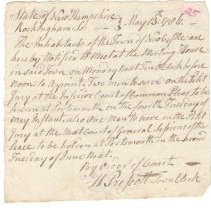 State of New Hampshire
Rockingham Ss. } May 13th 1786.
The Inhabitants of the Town of Newcastle are
hereby Notified to Meet at the Meeting House
in said Town on Monday Next
Noon to Appoint Two men to serve on the Petit
Jury at the Inferior Court of Common Pleas to be
holden at Portsmouth on the fourth Tuesday of
May Instant also One man to serve on the Petit
Jury at the Next Court of General Sessions of the
Peace to be holden at Portsmouth on the Second
Tuesday of June Next.
By Order of Court
H Prescott Town Clerk